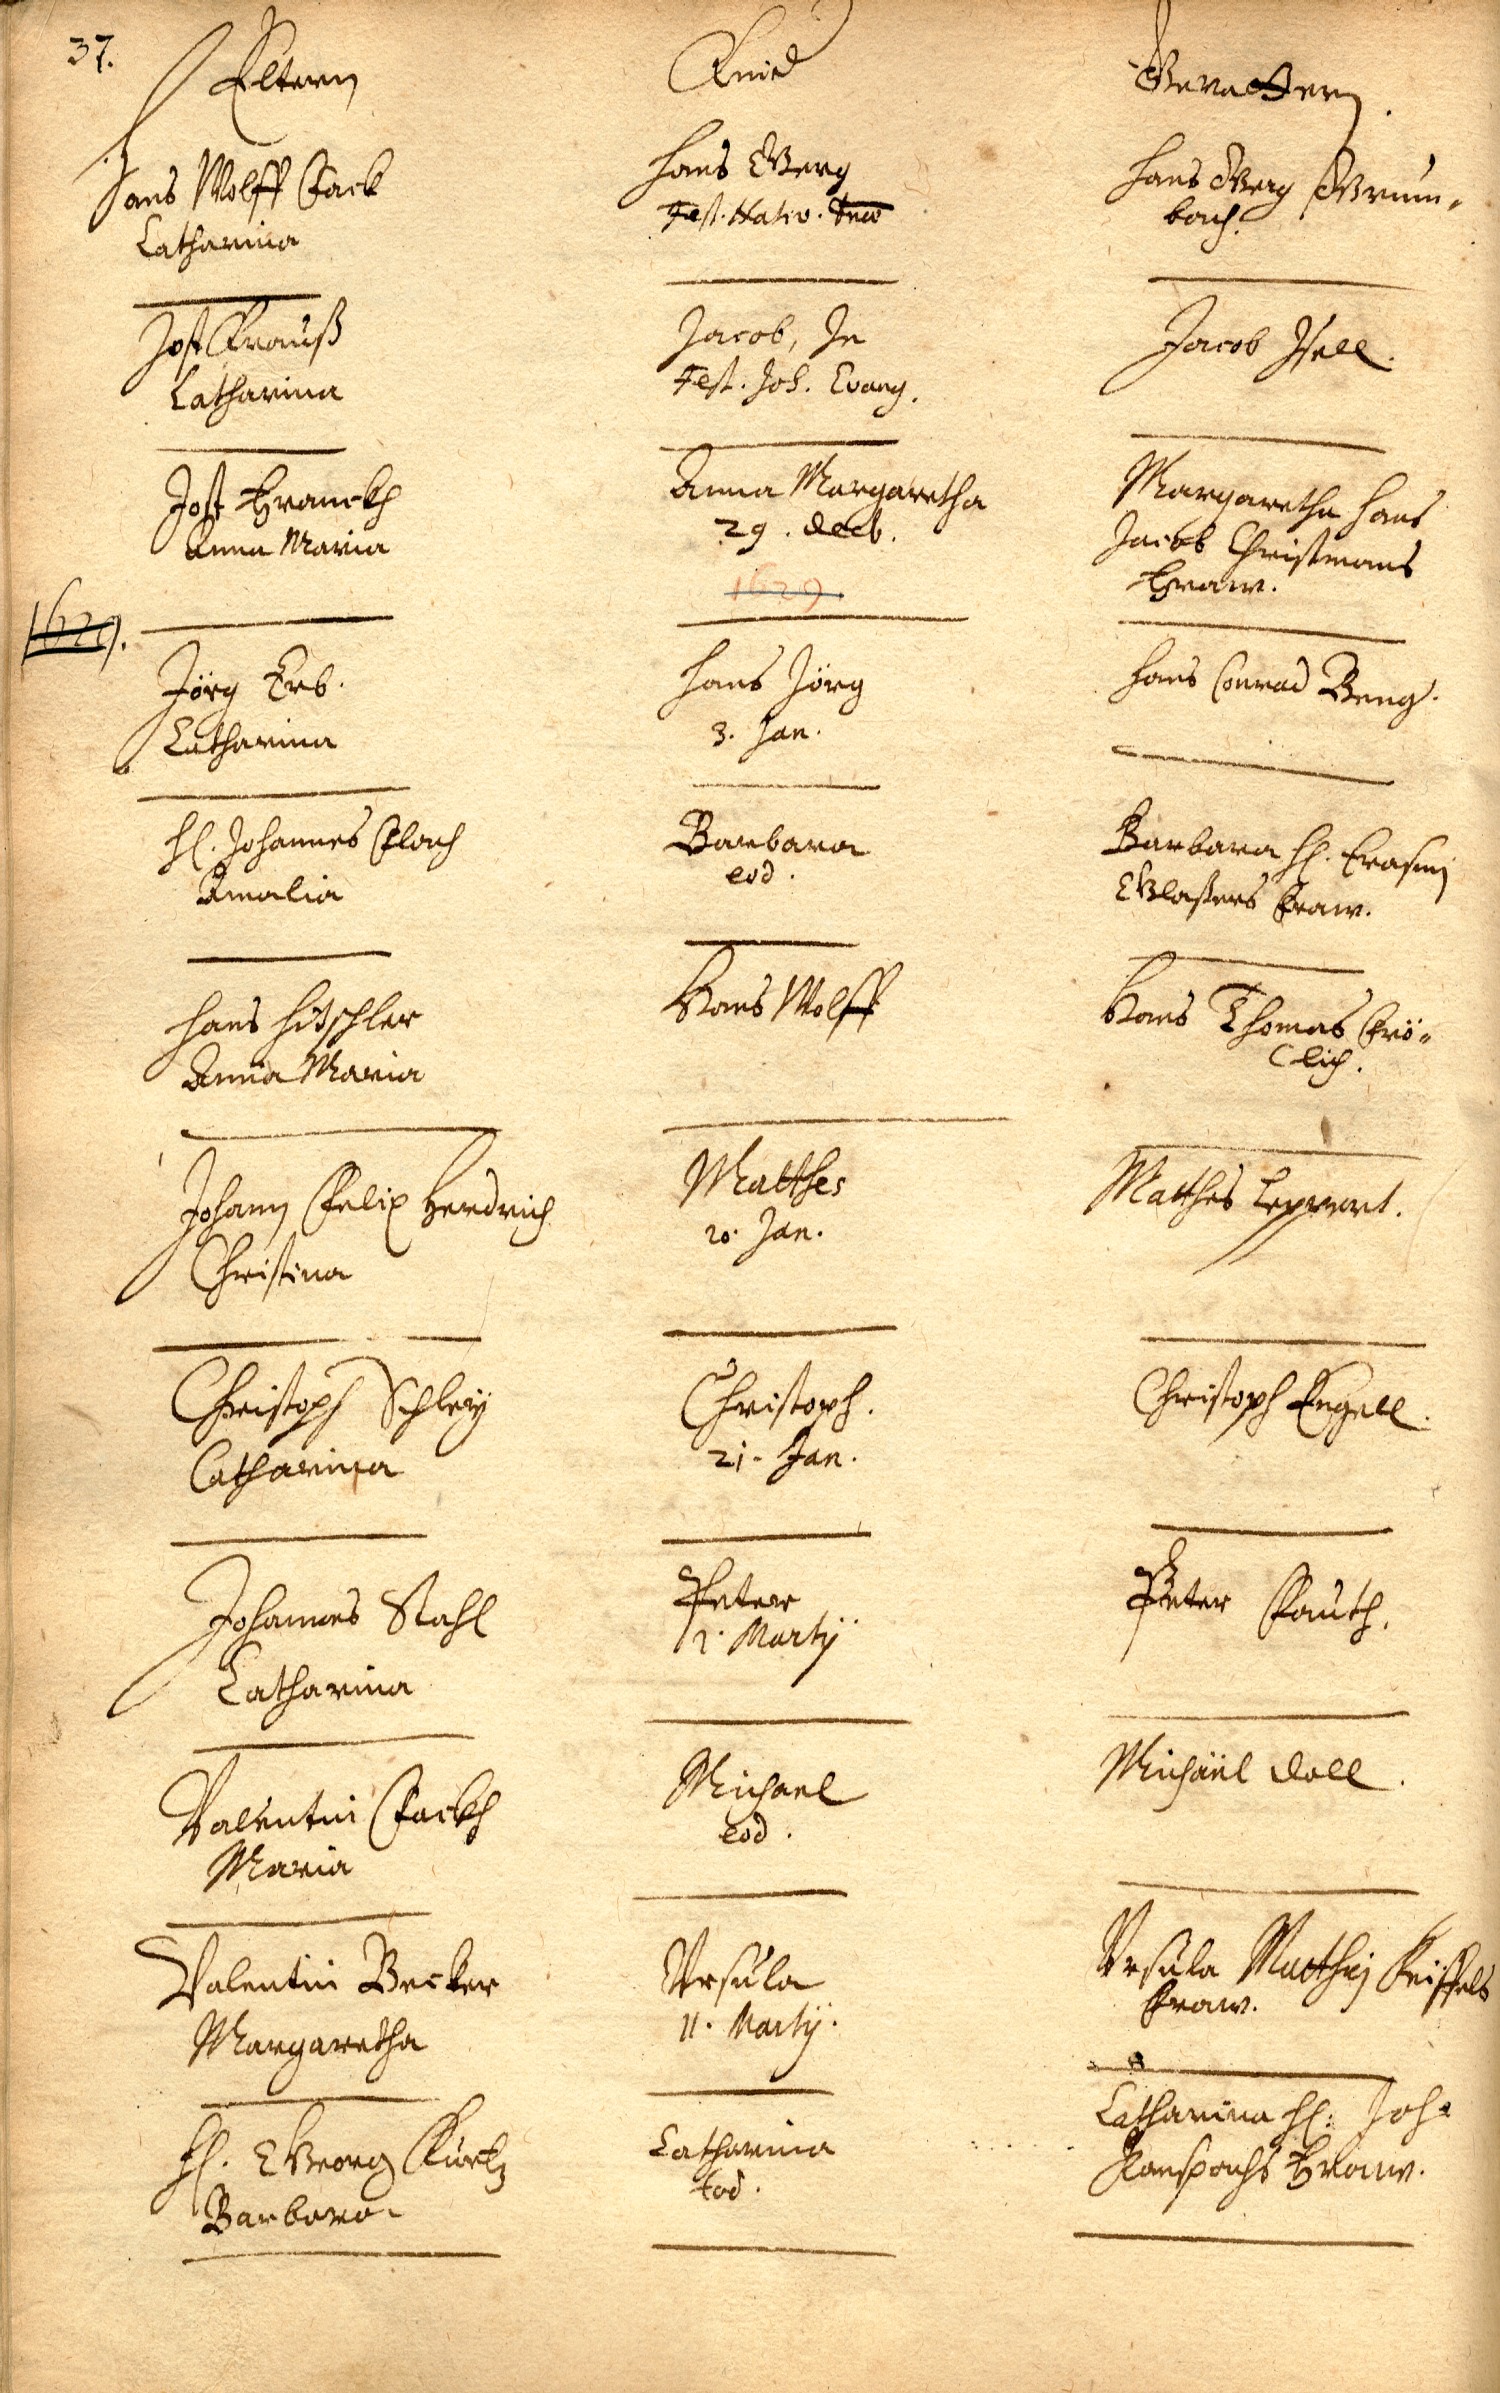 37.
Eltern
Kind
Gevattern.
Hans Wolff Fack
Catharina
Hans Georg
Fest. Nativ.
Hans Georg Grum-
bach.
Jost Krauß
Catharina
Jacob, In
Fest. Joh. Evang.
Jacob Itell.
Jost Franckh
Anna Maria
Anna Margaretha
29. Decb.
1629
Margaretha Hans
Jacob Christmans
Fraw.
1629.
Jörg Erb.
Catharina
Hans Jörg
3. Jan.
Hans Conrad Beng.
H. Johannes Floch
Amalia
Barbara
eod.
Barbara H. Erasmj
Glasers Fraw.
Hans Hitschler
Anna Maria
Hans Wolff
Hans Thomas Frö-
lich.
Johann Felix Herdrich
Christina
Matthes
20. Jan.
Matthes Leppert.
Christoph Schleÿ
Catharina
Christoph.
21. Jan.
Christoph Engell.
Johannes Stahl
Catharina
Peter
1. Martÿ
Peter Fauth.
Valentin Fackh
Maria
Michael
eod.
Michäel Doll.
Valentin Becker
Margaretha
Ursula
11. Martÿ.
Ursula Matthej
Fraw.
H. Georg Kurtz
Barbara
Catharina
Eod.
Catharina H. Joh.
Ranspachs Fraw.